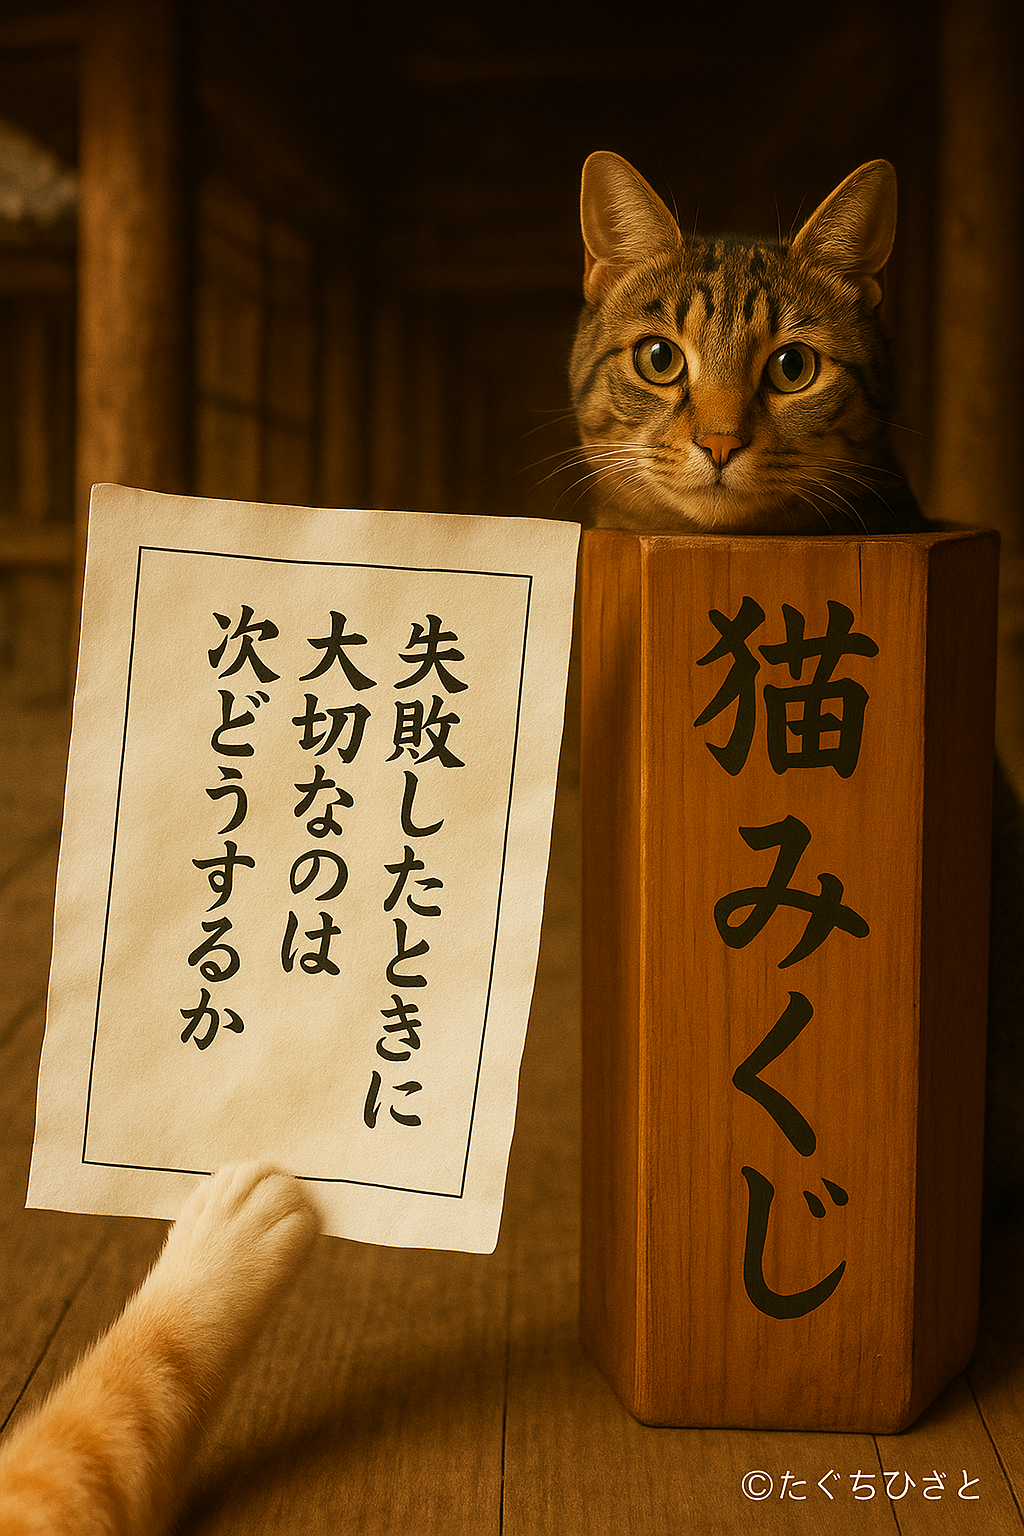 失敗したときに
大切なのは
次どうするか
猫みくじ
©たぐちひざと